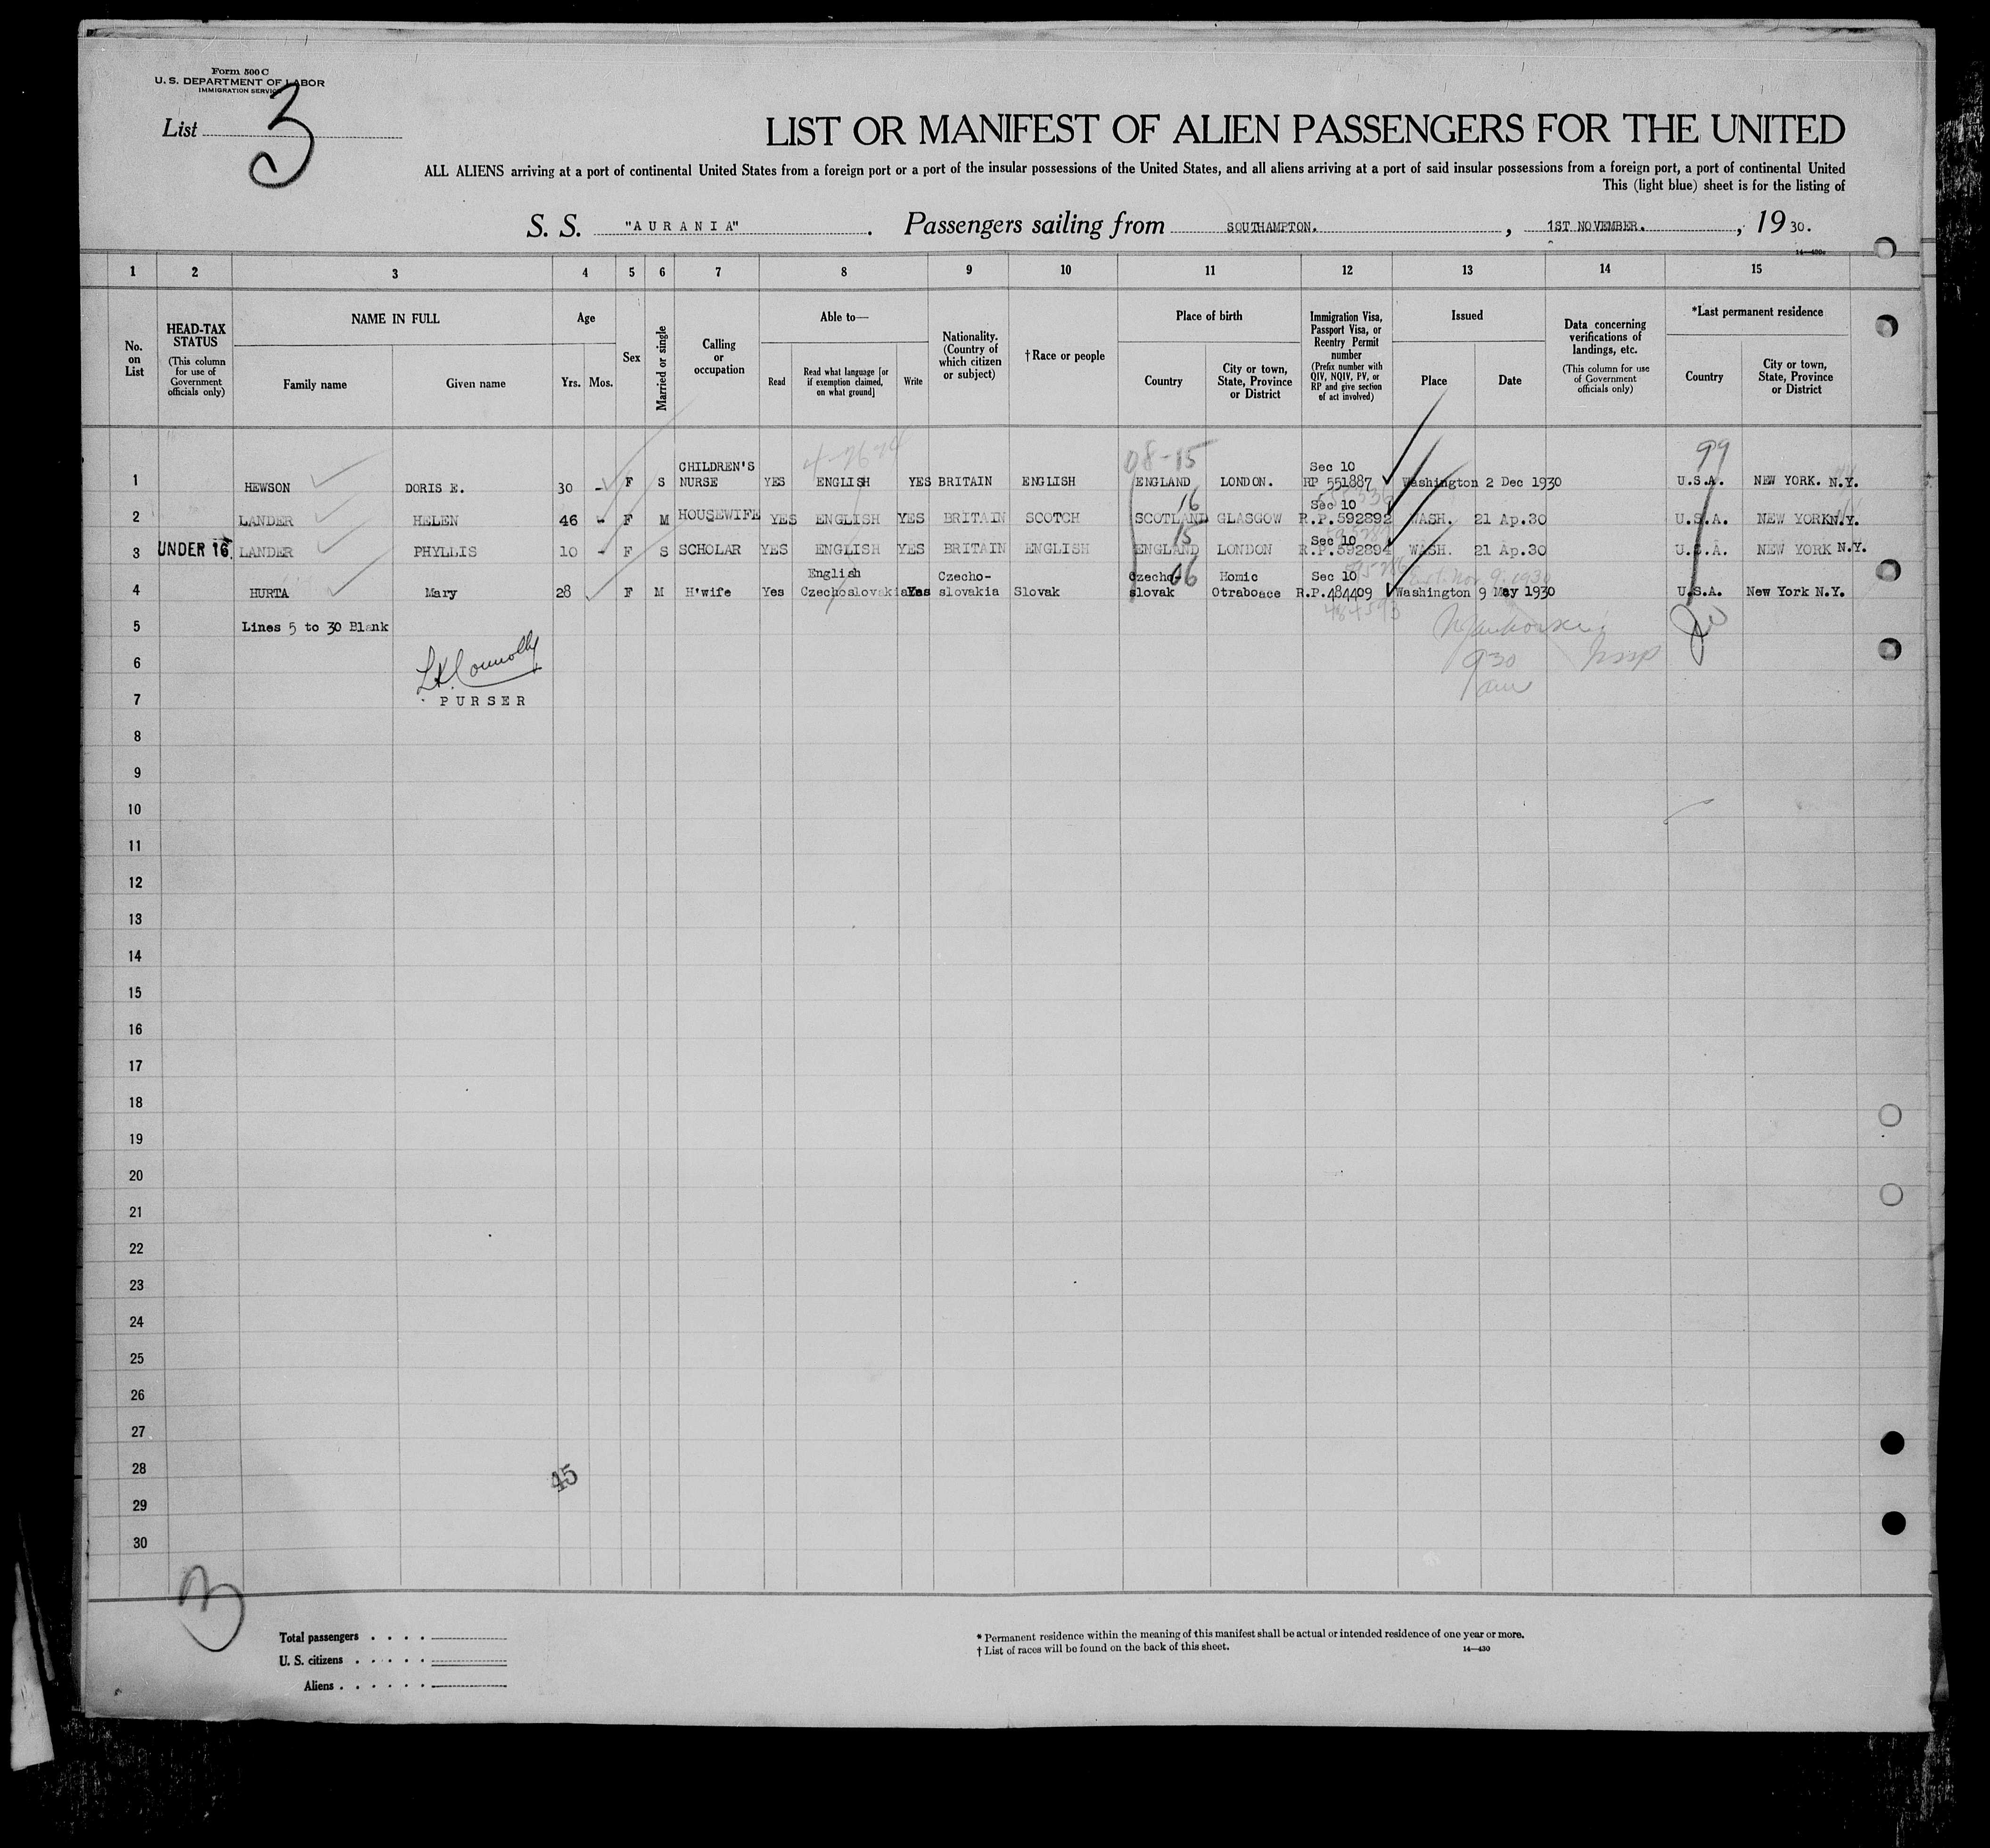 Form 500 C
U. S. DEPARTMENT OF LABOR
IMMIGRATION SERVICE
List 3
LIST OR MANIFEST OF ALIEN PASSENGERS FOR THE UNITED
ALL ALIENS arriving at a port of continental United States from a foreign port or a port of the insular possessions of the United States, and all aliens arriving at a port of said insular possessions from a foreign port, a port of continental United
This (light blue) sheet is for the listing of
S. S. "AURANIA" . Passengers sailing from SOUTHAMPTON. , 1ST NOVEMBER. , 19 30.
1 2 3 4 5 6 7 8 9 10 11 12 13 14 15
No. on List
HEAD-TAX STATUS (This column for use of Government officials only)
NAME IN FULL
Family name
Given name
Age
Yrs. Mos.
Sex
Married or single
Calling or occupation
Able to—
Read
Read what language [or if exemption claimed, on what ground]
Write
Nationality. (Country of which citizen or subject)
†Race or people
Place of birth
Country
City or town, State, Province or District
Immigration Visa, Passport Visa, or Reentry Permit number (Prefix number with QIV, NQIV, PV, or RP and give section of act involved)
Issued
Place
Date
Data concerning verifications of landings, etc. (This column for use of Government officials only)
*Last permanent residence
Country
City or town, State, Province or District
08-15
99
1 HEWSON DORIS E. 30 - F S CHILDREN'S NURSE YES ENGLISH YES BRITAIN ENGLISH ENGLAND LONDON. Sec 10 RP 551887 Washington 2 Dec 1930 U.S.A. NEW YORK. N.Y.
16
2 LANDER HELEN 46 - F M HOUSEWIFE YES ENGLISH YES BRITAIN SCOTCH SCOTLAND GLASGOW Sec 10 R.P.592892 WASH. 21 Ap.30 U.S.A. NEW YORK N.Y.
15
3 UNDER 16. LANDER PHYLLIS 10 - F S SCHOLAR YES ENGLISH YES BRITAIN ENGLISH ENGLAND LONDON Sec 10 R.P.592894 WASH. 21 Ap.30 U.S.A. NEW YORK N.Y.
06
4 HURTA Mary 28 F M H'wife Yes English Czechoslovakia Yes Czecho-slovakia Slovak Czecho-slovak Homic Otraboace Sec 10 R.P.484409 Washington 9 May 1930 U.S.A. New York N.Y.
Ext. Nov. 9. 1930
5 Lines 5 to 30 Blank
6 Connolly
7 PURSER
930
8
9
10
11
12
13
14
15
16
17
18
19
20
21
22
23
24
25
26
27
28 45
29
30
3
Total passengers . . . .
U. S. citizens . . . . .
Aliens . . . . . .
* Permanent residence within the meaning of this manifest shall be actual or intended residence of one year or more.
† List of races will be found on the back of this sheet.
14—430